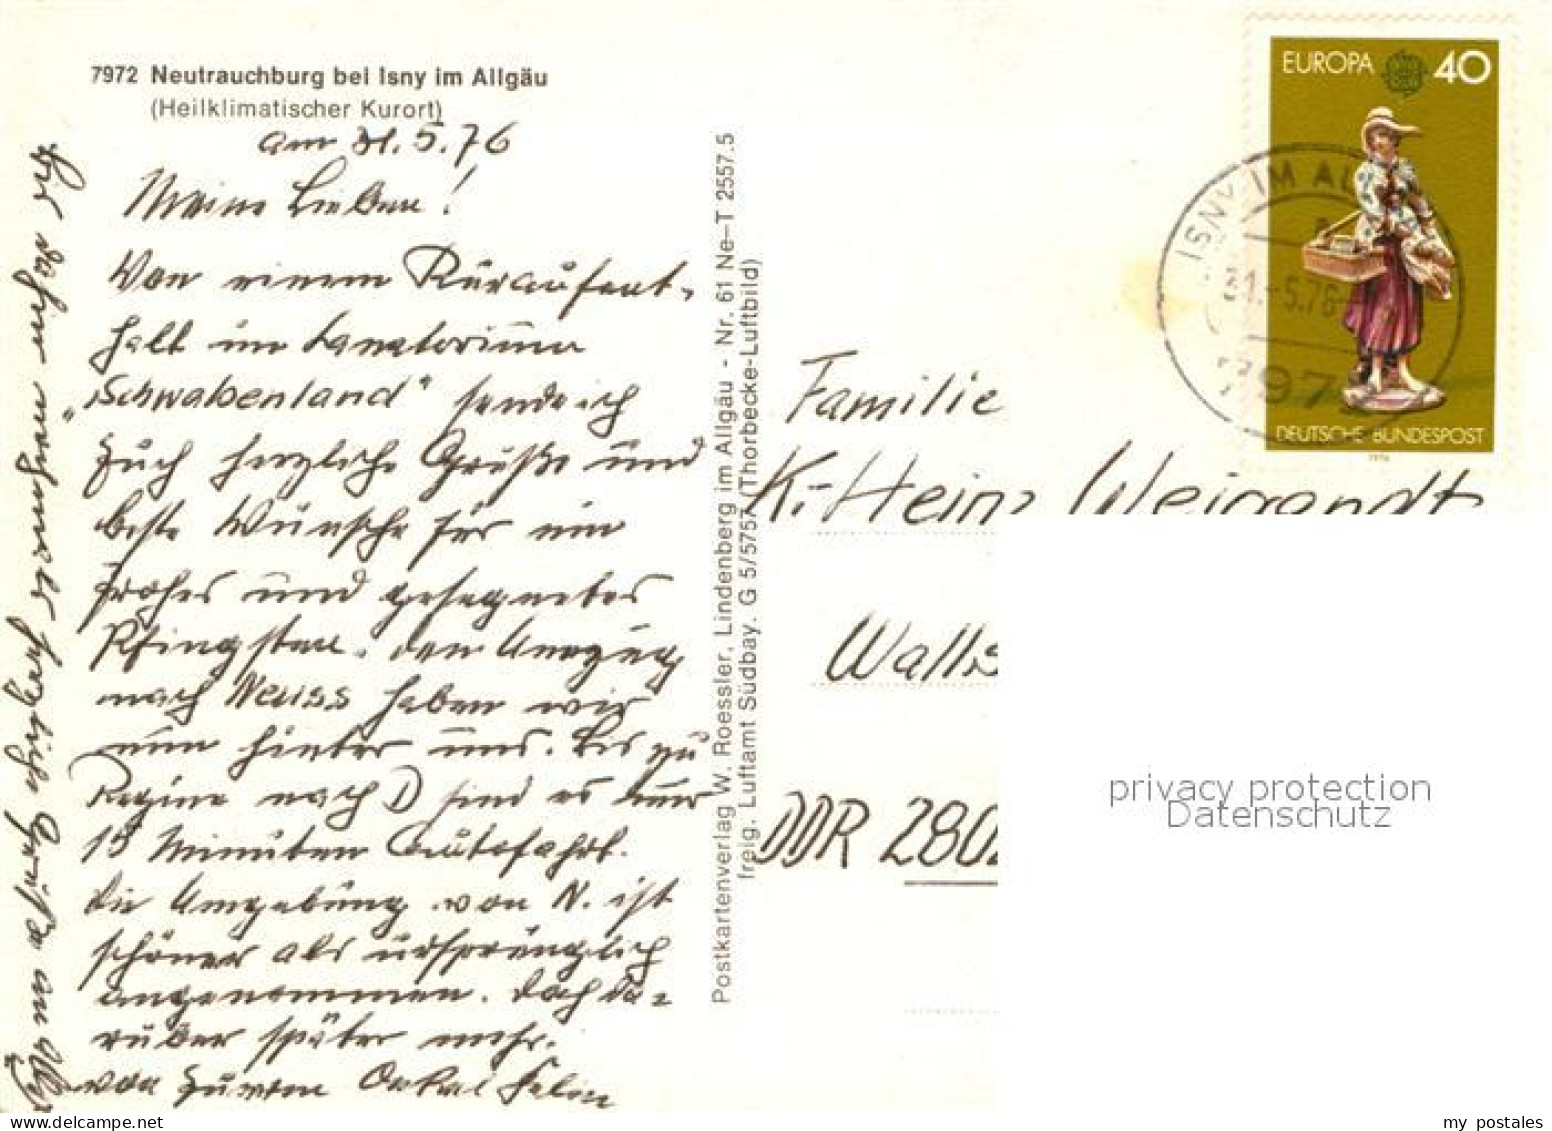 7972 Neutrauchburg bei Isny im Allgäu
(Heilklimatischer Kurort)
am 31.5.76
Meine Lieben!
Von einem Kuraufent-
halt im Sanatorium
„Schwabenland" sende ich
Euch herzliche Grüße und
beste Wünsche für ein
frohes und gesegnetes
Pfingsten. Den Umzug
nach Neuss haben wir
nun hinter uns. Bis zu
Regine nach D sind es nur
15 Minuten Autofahrt.
Die Umgebung von N. ist
schöner als ursprünglich
angenommen. Doch da-
rüber später mehr.
von Eurem Onkel
herzliche Grüße
Postkartenverlag W. Roessler, Lindenberg im Allgäu - Nr. 61 Ne-T 2557.5
freig. Luftamt Südbay. G 5/5757 (Thorbecke-Luftbild)
EUROPA 40
DEUTSCHE BUNDESPOST
1976
ISNY IM AL
a
31.-5.76
797
Familie
K.-Heinz Weigandt
Walls
DDR 280
privacy protection
Datenschutz
my postales